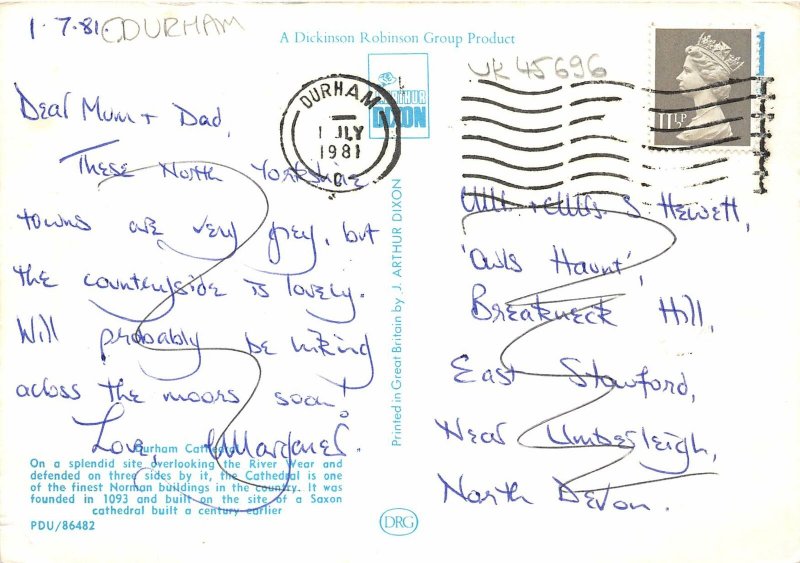 1.7.81. DURHAM
A Dickinson Robinson Group Product
UK45696
ARTHUR
DIXON
DURHAM
1 JLY
1981
11½P
Dear Mum + Dad,
These North Yorkshire
towns are very grey, but
the countryside is lovely.
Will probably be hiking
across the moors soon!
Love, Margaret.
Durham Cathedral
On a splendid site overlooking the River Wear and
defended on three sides by it, the Cathedral is one
of the finest Norman buildings in the country. It was
founded in 1093 and built on the site of a Saxon
cathedral built a century earlier
PDU/86482
Printed in Great Britain by J. ARTHUR DIXON
DRG
Mr. + Mrs. S. Hewett,
'Owls Haunt',
Breakneck Hill,
East Stowford,
Near Umberleigh,
North Devon.